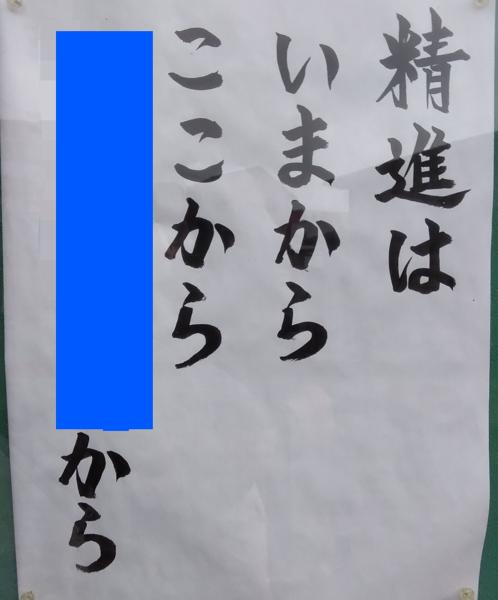 精進は
いまから
ここから
から